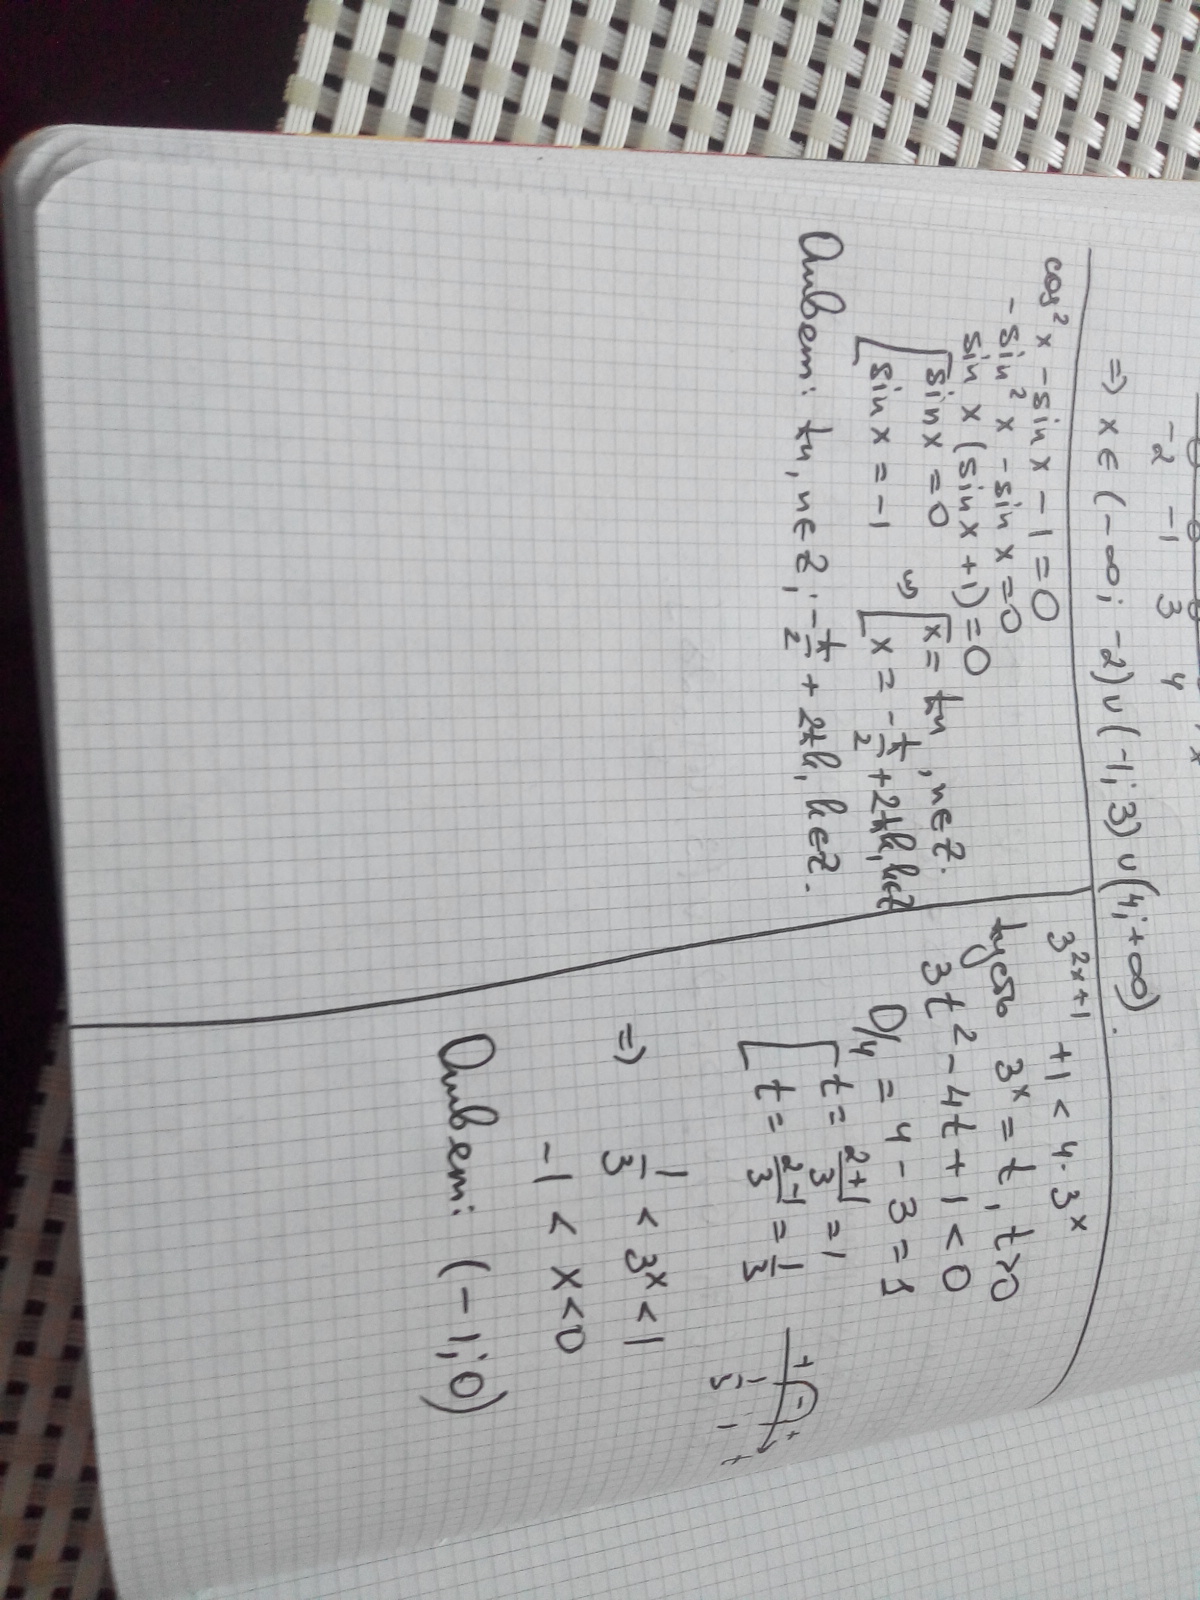 -2 -1 3 4 x
=> x ∈ (-∞; -2) ∪ (-1; 3) ∪ (4; +∞).
cos² x - sin x - 1 = 0
- sin² x - sin x = 0
sin x (sin x + 1) = 0
[ sin x = 0 => [ x = πn, n ∈ Z.
[ sin x = -1 [ x = -π/2 + 2πk, k ∈ Z
Ответ: πn, n ∈ Z; -π/2 + 2πk, k ∈ Z.
3^(2x+1) + 1 < 4 · 3^x
пусть 3^x = t, t > 0
3t² - 4t + 1 < 0
D/4 = 4 - 3 = 1
[ t = (2+1)/3 = 1
[ t = (2-1)/3 = 1/3
+ - +
1/3 1 t
=> 1/3 < 3^x < 1
-1 < x < 0
Ответ: (-1; 0)